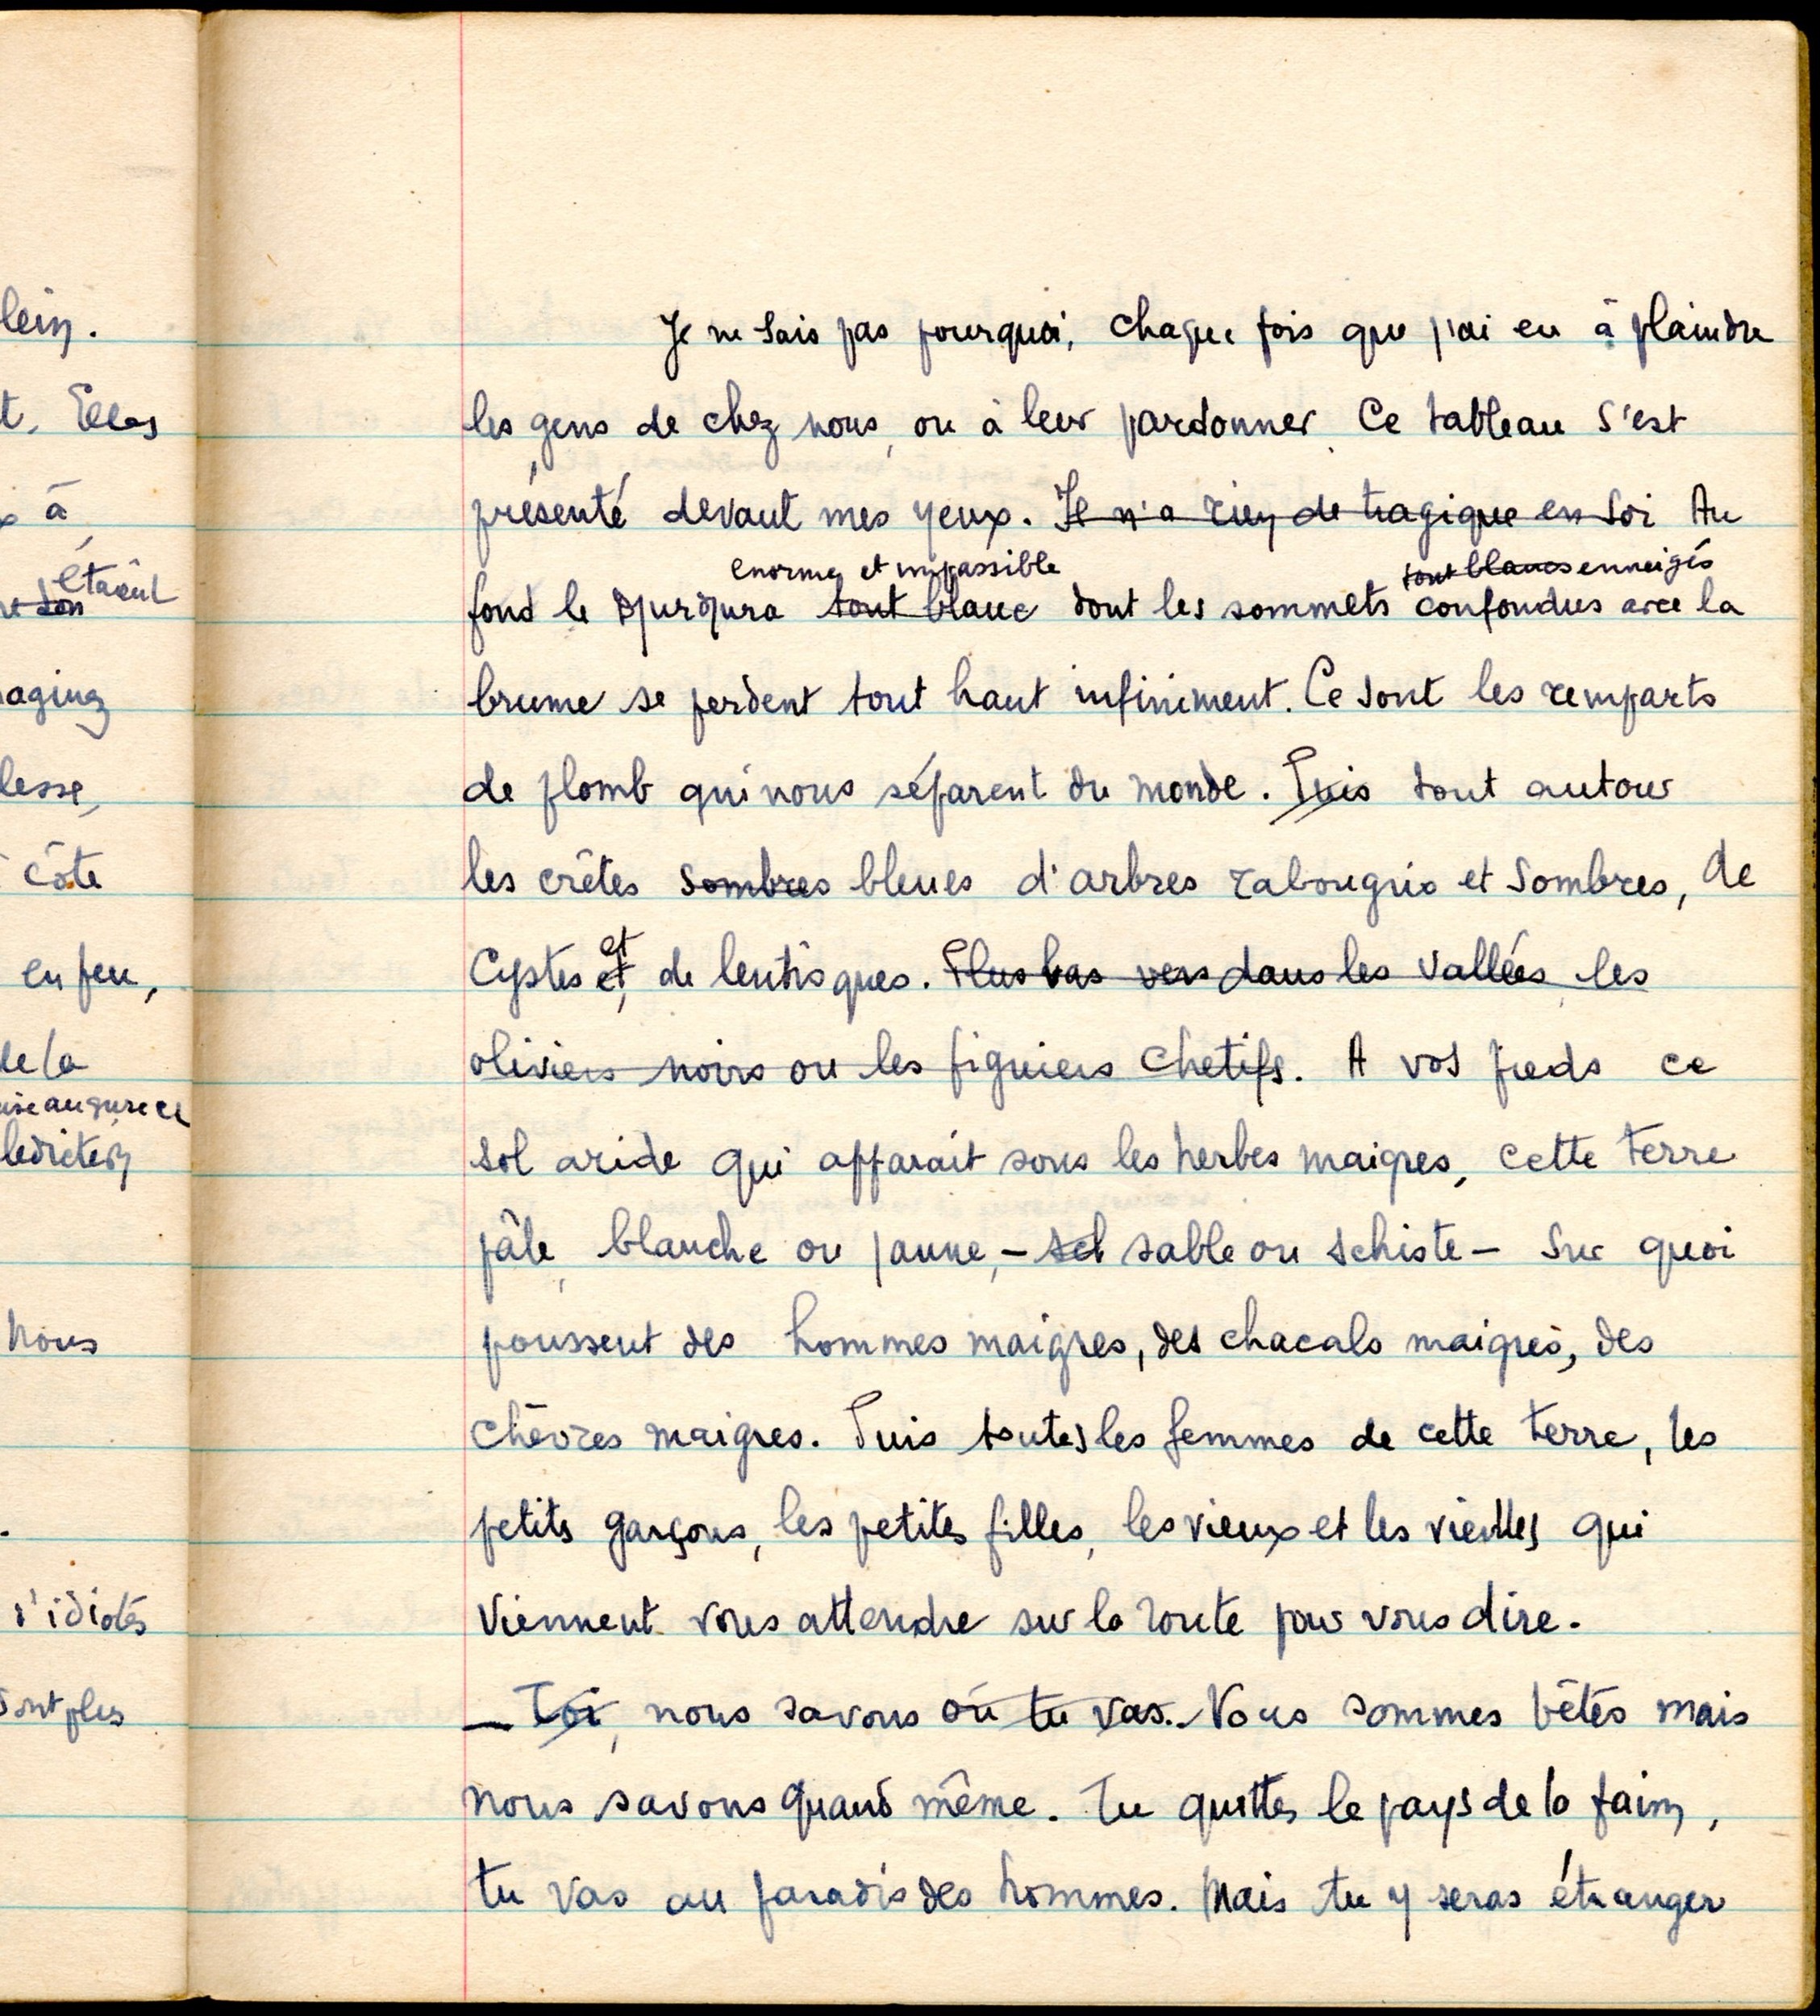 lein.
t. Elles
à
étaient
son
aging
lesse,
côte
en feu,
de la
augure et
lediction
Nous
s'idiotés
sont plus
Je ne sais pas pourquoi, chaque fois que j'ai eu à plaindre
les gens de chez nous, ou à leur pardonner Ce tableau s'est
présenté devant mes yeux. Il n'a rien de tragique en soi Au
enorme et impassible tout blancs enneigés
fond le Djurdjura tout blanc dont les sommets confondus avec la
brume se perdent tout haut infiniment. Ce sont les remparts
de plomb qui nous séparent du monde. Puis tout autour
les crêtes sombres bleues d'arbres rabougris et sombres, de
et
Cystes et, de lentisques. Plus bas vers dans les vallées les
oliviers noirs ou les figuiers chetifs. A vos pieds ce
sol aride qui apparait sous les herbes maigres, cette terre
pâle, blanche ou jaune, - sel sable ou schiste - Sur quoi
poussent des hommes maigres, des chacals maigres, des
chèvres maigres. Puis toutes les femmes de cette terre, les
petits garçons, les petites filles, les vieux et les vieilles qui
viennent vous attendre sur la route pour vous dire.
- Toi, nous savons où tu vas. Nous sommes bêtes mais
nous savons quand même. Tu quittes le pays de la faim,
tu vas au paradis des hommes. Mais tu y seras étranger